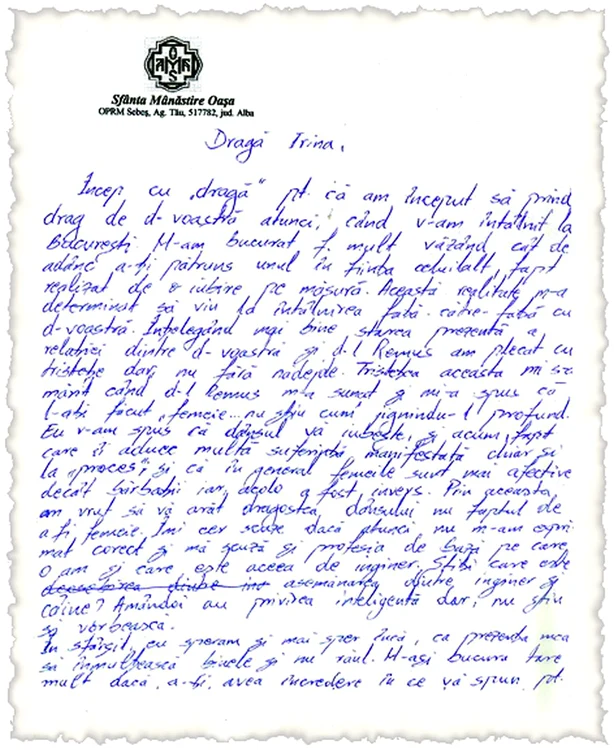 Sfânta Mânăstire Oaşa
OPRM Sebeş, Ag. Tău, 517782, jud. Alba
Dragă Irina,
Încep cu „dragă" pt. că am început să prind
drag de d-voastră atunci, când v-am întâlnit la
Bucureşti. M-am bucurat f. mult văzând cât de
adânc a-ţi pătruns unul în fiinţa celuilalt, fapt
realizat de o iubire pe măsură. Această realitate m-a
determinat să viu la întâlnirea faţă către faţă cu
d-voastră. Înţelegând mai bine starea prezentă a
relaţiei dintre d-voastră şi d-l Remus am plecat cu
tristeţe dar, nu fără nădejde. Tristeţea aceasta mi s-a
mărit când d-l Remus m-a sunat şi mi-a spus că
l-aţi făcut „femeie... nu ştiu cum" jignindu-l profund.
Eu v-am spus că dânsul vă iubeşte, şi acum, fapt
care îi aduce multă suferinţă manifestată chiar şi
la „proces", şi că în general femeile sunt mai afective
decât bărbaţii iar, acolo a fost invers. Prin aceasta
am vrut să vă arăt dragostea dânsului nu faptul de
a fi femeie. Îmi cer scuze dacă atunci nu m-am expri
mat corect şi mă scuză şi profesia de bază pe care
o am şi care este aceea de inginer. Ştiţi care este
asemănarea dintre inginer şi
câine? Amândoi au privirea inteligentă dar, nu ştiu
să vorbească.
În sfârşit, eu speram şi mai sper încă, ca prezenţa mea
să înmulţească binele şi nu răul. M-aşi bucura tare
mult dacă, a-ţi, avea încredere în ce vă spun, pt.